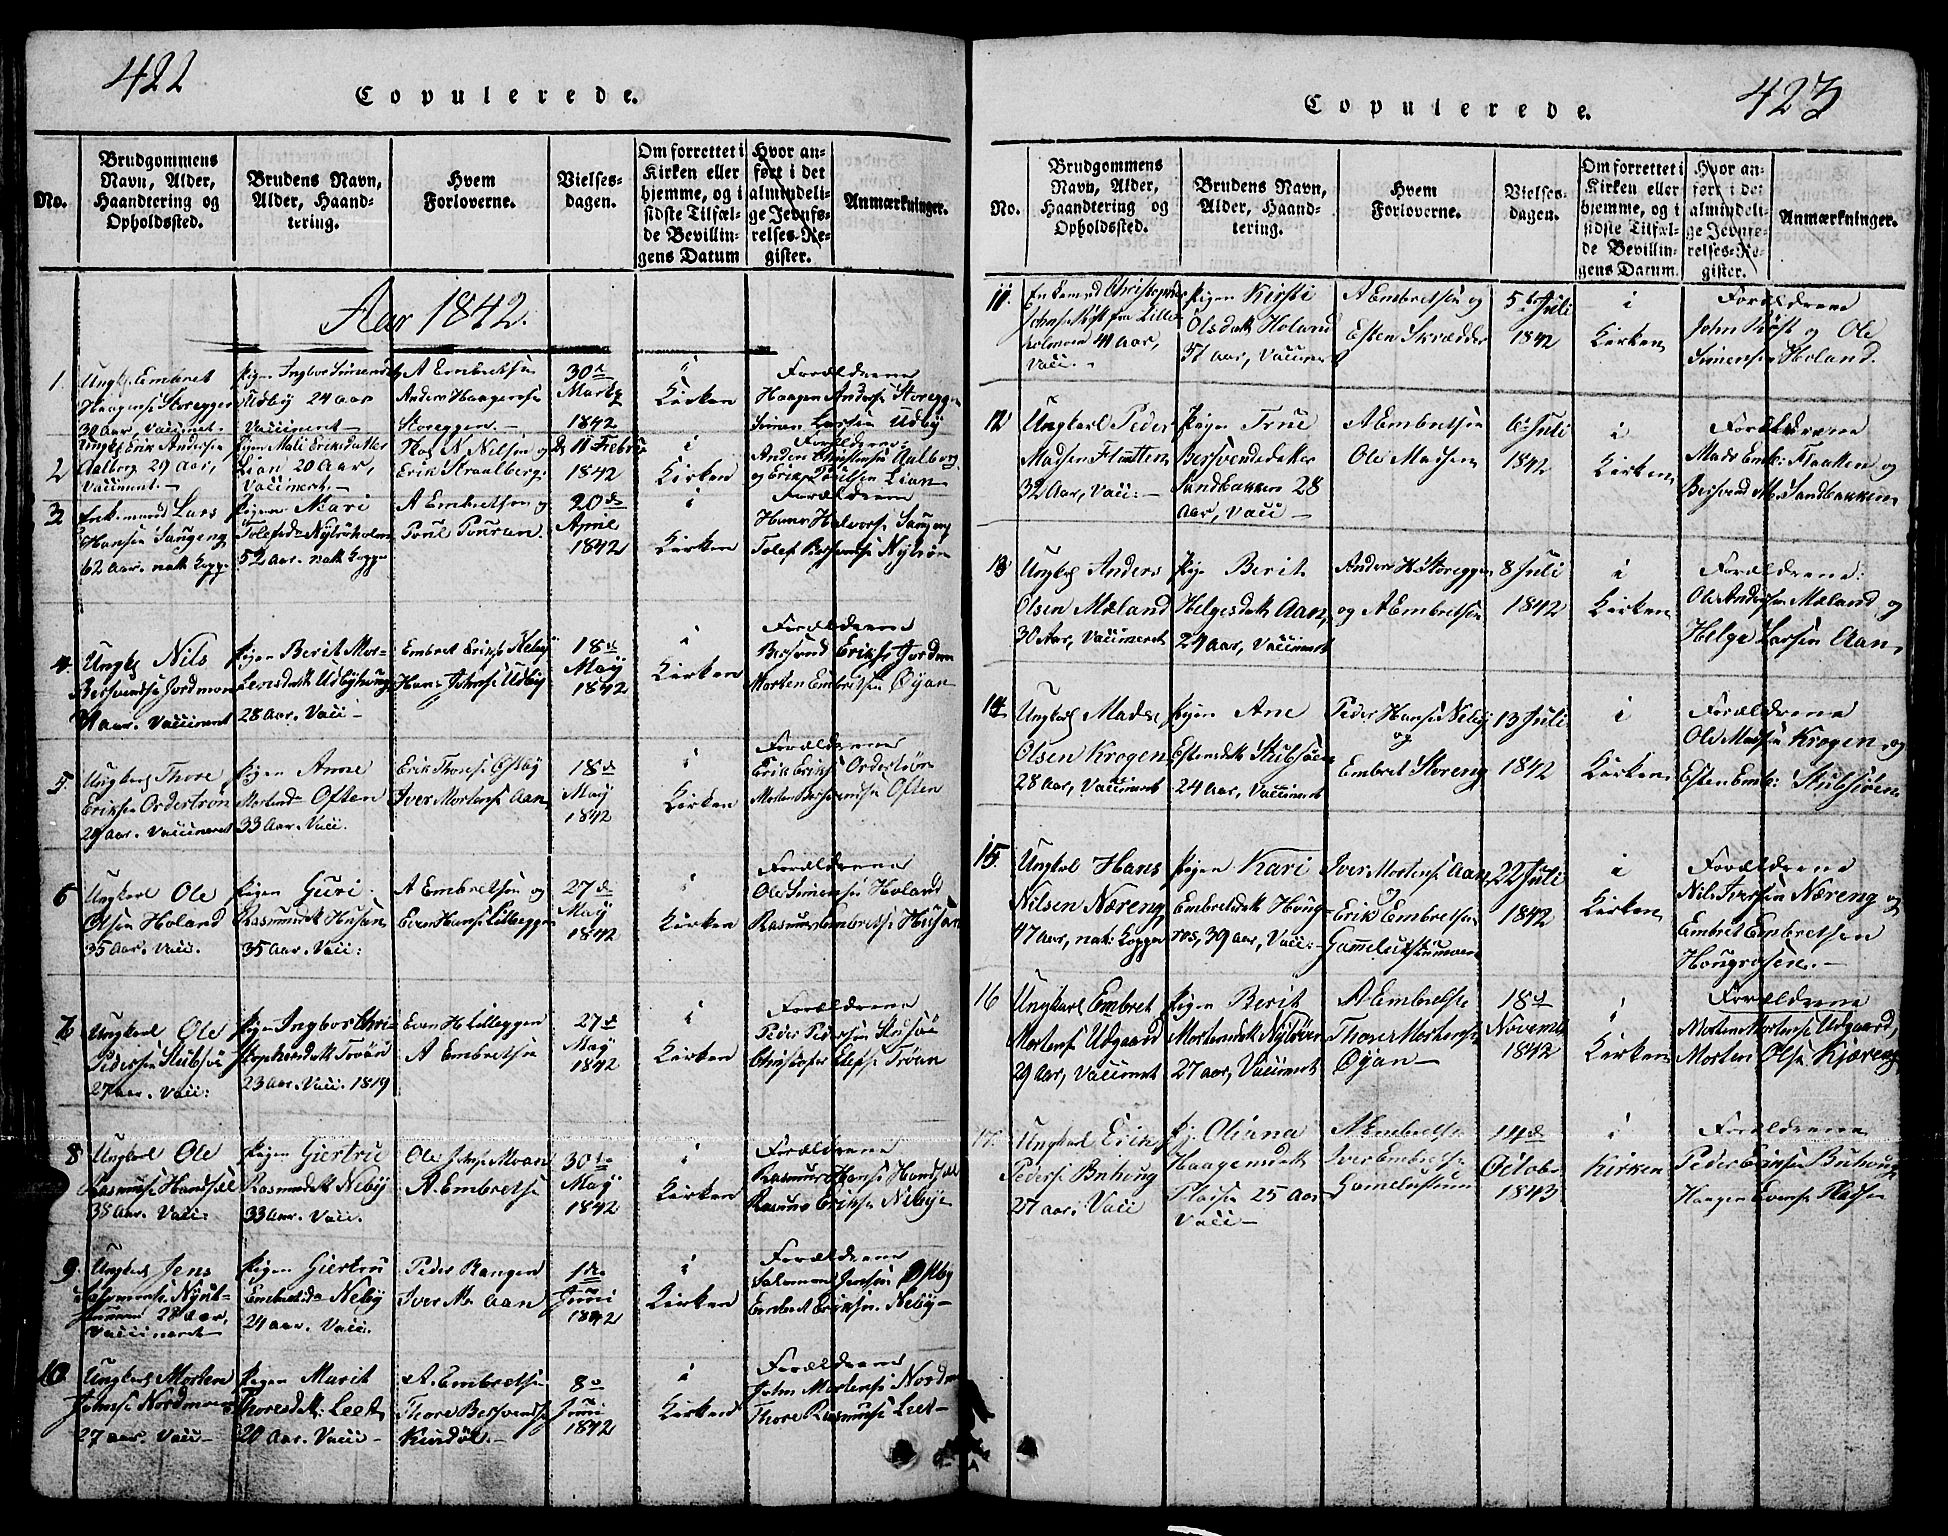 422
Copulerede.
No.
Brudgommens
Navn, Alder,
Haandtering og
Opholdssted.
Brudens Navn,
Alder, Haand-
tering.
Hvem
Forloverne.
Vielses-
dagen.
Om forrettet i
Kirken eller
hjemme, og i
sidste Tilfæl-
de Bevillin-
gens Datum
Hvor an-
ført i det
almindeli-
ge Jevnfø-
relses-Re-
gister.
Anmærkninger.
Aar 1842.
1.
Ungk Embret
Haagense Storeggen
30 Aar, Vaccineret.
Pigen Ingbor Simensdt
Udby 24 aar
Vaccineret.—
A Embretsen
Anders Haagense
Storeggen.—
30d
Marts
1842
i
Kirken
Forældrene
Haagen Anderse Storeggen
Simen Larsen Udby
2
Ungk Erik Andersen
Aalborg 29 Aar,
Vaccineret.—
Pigen Mali Eriksdatter
Lian 20 Aar,
Vaccinert.—
N Nilsen og
Erik Straalberg.
d 11 Febru
1842
i
Kirken
Forældrene
Anders Christense Aalborg
og Erik Poulsen Lian
3
Enkemand Lars
Hansen Saugeng
62 Aar. nath. Kopp.
Pigen Mari
52 Aar. nath Kopper
A Embretsen og
20de
April
1842
i
Kirken
Forældrene
Hans Halvorse Saugeng
Tolef Bersvense Nylsøn
4.
Ungk Nils
Bersvendse Jordmoen
31 aar. Vaccineret
Pigen Berit Mor-
tensdatt Udbyhaug
28 Aar. Vacc—
Embret Erikse Neby
Hans Johnse Udby
18de
May
1842
i
Kirken
Forældrene
Bersvend Erikse Jordmo
Morten Embretsen Øyan
5.
Ungkarl Thore
Eriksen Orderstrøn
29 Aar. Vaccineret
Pigen Anne
Mortensd Often
33 Aar. Vacc.
Erik Thorese Østby
Iver Mortense Aan
18de
May
1842
i
Kirken
Forældrene
Erik Erikse Orderstrøn
Morten Bersvendse Often
6
Ungkarl Ole
Olsen Holand
35 Aar. Vacc.
Pigen Guri
Rasmusdatt Husan
35 Aar. Vacc:
A Embretsen og
Even Hanse Lilleggen
27de
May
1842
i
Kirken
Forældrene
Ole Simensen Holand
Rasmus Embretse Husan
7.
Ungkarl Ole
Pedersen Stubsøe
27 Aar. Vacc:
Pigen Ingbor Chri-
23 Aar. Vacc. 1819
Even H Lilleggen
A Embretsen
27de
May
1842
i
Kirken
Forældrene
Peder Pedersen Stubsøe
Christofer Trøan
8
Ungkarl Ole
Rasmuse
35 Aar. Vacc:
Pigen Giertru
Rasmusdatt Neby
33 Aar. Vacc.
Ole Johnse Moan
A. Embretse
30te
May
1842
i
Kirken
Forældrene
Rasmus Hanse
Rasmus Erikse Neby-
9.
Ungkarl Jens
28 Aar,
Vaccineret
Pigen Giertru
Embretsd Neby
24 aar. Vacc.
Peder Rangen
Iver M. Aan
1de
Juni
1842
i
Kirken
Forældrene
Salomon Jensen Østby
Embret Eriksen Neby—
10
Ungkarl Morten
Johnse Nordmoen
27 aar. Vacc—
Pigen Marit
Thoresdatt: Leet
20 Aar. Vacc—
A. Embretse
Thore Bersvendse
Kindøl.—
8d
Juni
1842
i
Kirken
Forældrene
John Mortense Nordm
Thore Rasmuse Leet—
423
Copulerede.
No.
Brudgommens
Navn, Alder,
Haandtering og
Opholdssted.
Brudens Navn,
Alder, Haand-
tering.
Hvem
Forloverne.
Vielses-
dagen.
Om forrettet i
Kirken eller
hjemme, og i
sidste Tilfæl-
de Bevillin-
gens Datum.
Hvor an-
ført i det
almindeli-
ge Jevnfø-
relses-Re-
gister.
Anmærkninger.
11.
Enkemand Christopher
Johnsen Røst fra Lille
41 Aar,
Vacc.—
Pigen Kirsti
Olsdatt Holand
37 aar, Vaccineret
A Embretsen og
Esten Skrædder
5te Juli
1842
i
Kirken
Forældrene
John Røst og Ole
Simensen Holand.
12
Ungkarl Peder
Madsen Flaatten
32 Aar, Vacc:—
Pigen True
Bersvendsdatter
Sandbakken 28
Aar, Vacc—
A Embretsen
Ole Madsen
6te Juli
1842
i
Kirken
Forældrene
Mads Emb: Flaatten og
Bersvend Mors Sandbakken
13
Ungkarl Anders
Olsen Mæland
30 Aar, Vaccineret
Pige Berit
Helgesdatt Aan,
24 aar, Vaccineret
Anders H Storeggen
og A Embretsen
8 Juli
1842
i
Kirken
Forældrene:
Ole Andersen Mæland og
Helge Larsen Aan,
14
Ungkarl Mads
Olsen Krogen
28 Aar, Vaccineret
Pigen Ane
Estensdatt Stubsøen
24 aar, Vaccineret
Peder Hanse Neby
og
Embret Storeng
13 Juli
1842
i
Kirken
Forældrene
Ole Madsen Krogen og
Esten Emb: Stubsøen
15.
Ungkarl Hans
Nilsen Næreng
47 Aar, nat: Kopper
Pigen Kari
Embretsdatt Houg-
ros, 39 aar, Vacc:-
Iver Mortense Aan
og
Erik Embretsen
Gammelutstumoen
22 Juli
1842
i
Kirken
Forældrene
Nils Iversen Næreng og
Embret Embretsen
Hougrosen.—
16
Ungkarl Embret
Mortense Udgaard
29 Aar, Vaccineret
Pigen Berit
Mortensdatt Nyløven
27 aar, Vaccineret
A. Embretse
Thore Mortense
Øyan—
18d
Novemb
1842
i
Kirken
Forældrene
Morten Mortense Udgaard,
Morten Olse Kjæreng
17.
Ungkarl Erik
Pederse Buhoug
27 aar. Vacc
Pig. Oliana
Haagensdatt
Pladsen 25 Aar
Vacc—
A. Embretse
Iver Embretse
14de
Octobr
1843
i
Kirken
Forældrene
Peder Eriksen Buhoug
Haagen Evense Pladsen